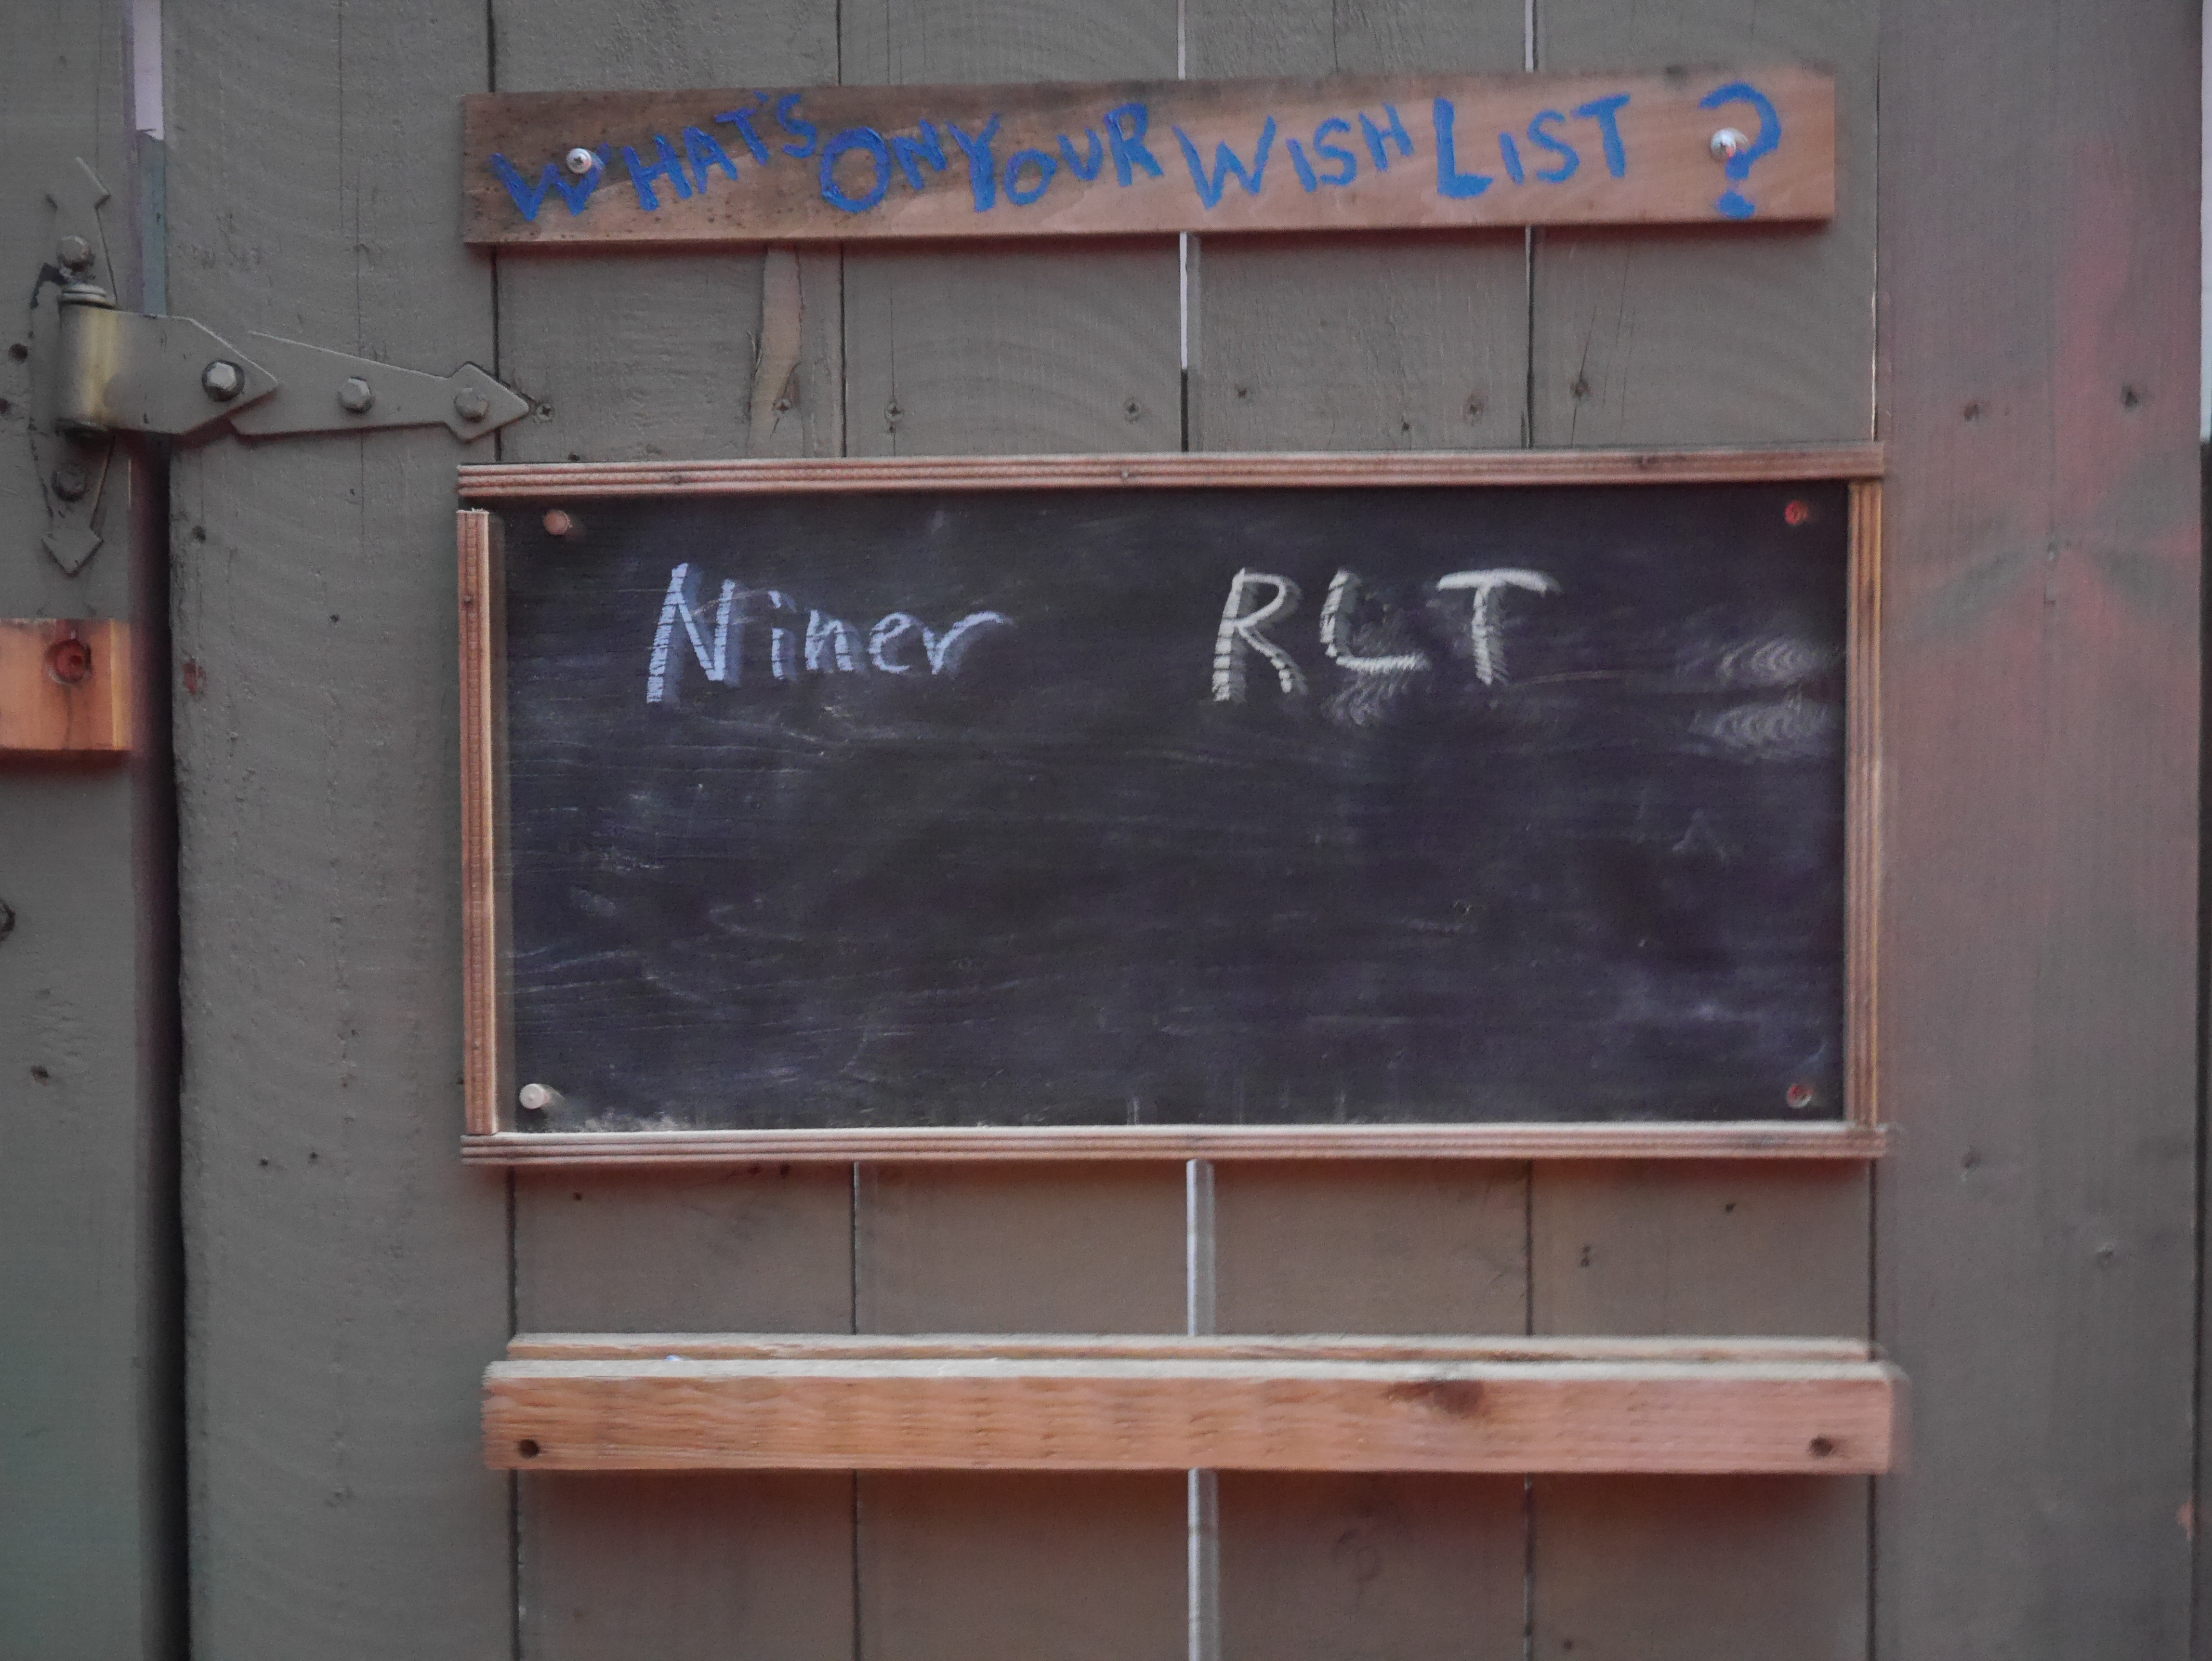 WHAT'S ON YOUR WISH LIST ?
Niner RLT